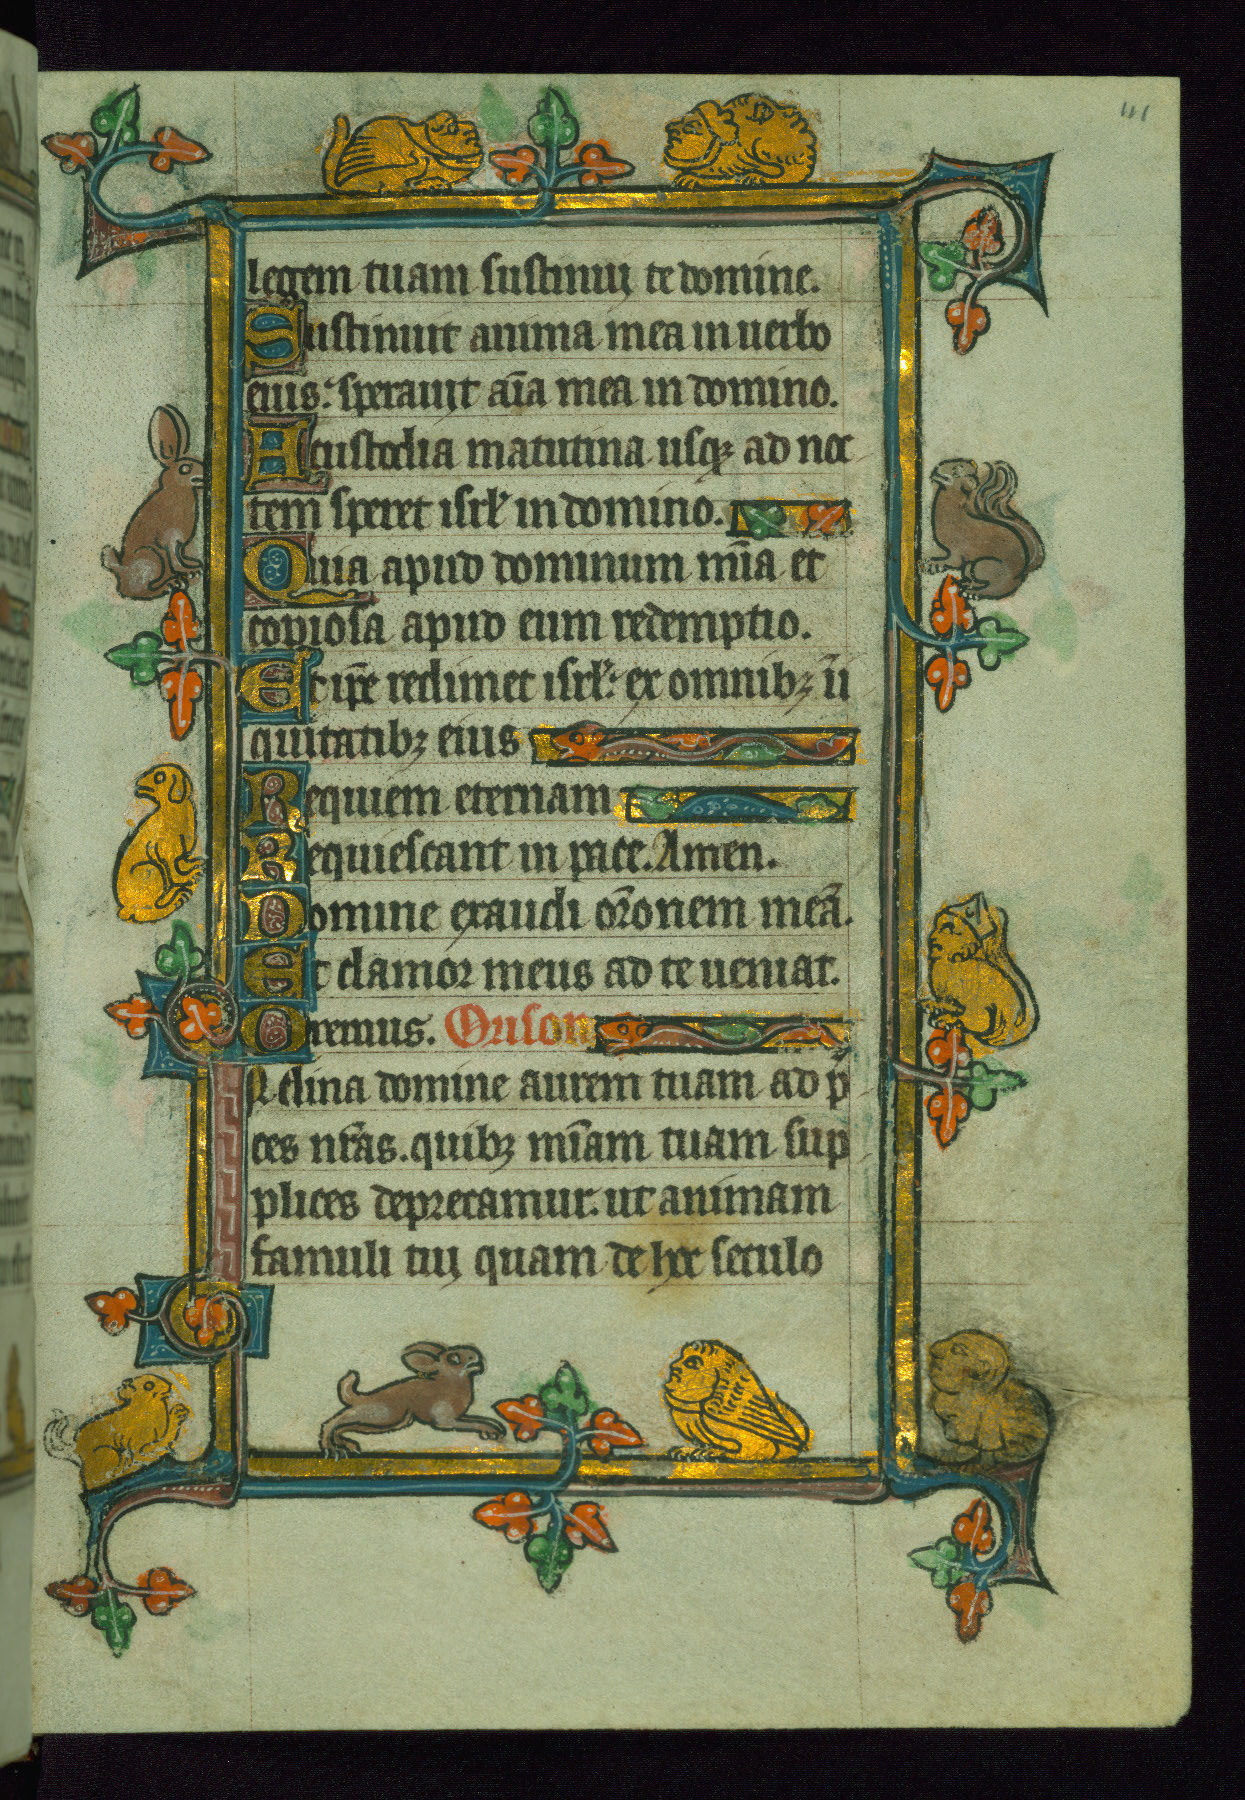 111
legem tuam sustinui te domine.
Sustinuit anima mea in uerbo
eius: sperauit aīa mea in domino.
A custodia matutina usqꝫ ad noc
tem speret isrl̓ in domino.
Quia apud dominum mīa et
copiosa apud eum redemptio.
Et ip̄e redimet isrl̓: ex omnibꝫ ini
quitatibꝫ eius
Requiem eternam
Requiescant in pace. Amen.
Domine exaudi or̄onem meā.
Et clamor meus ad te ueniat.
Oremus. Orison
Inclina domine aurem tuam ad p̄
ces nr̄as. quibꝫ mīam tuam sup
plices deprecamur. ut animam
famuli tui quam de hoc seculo